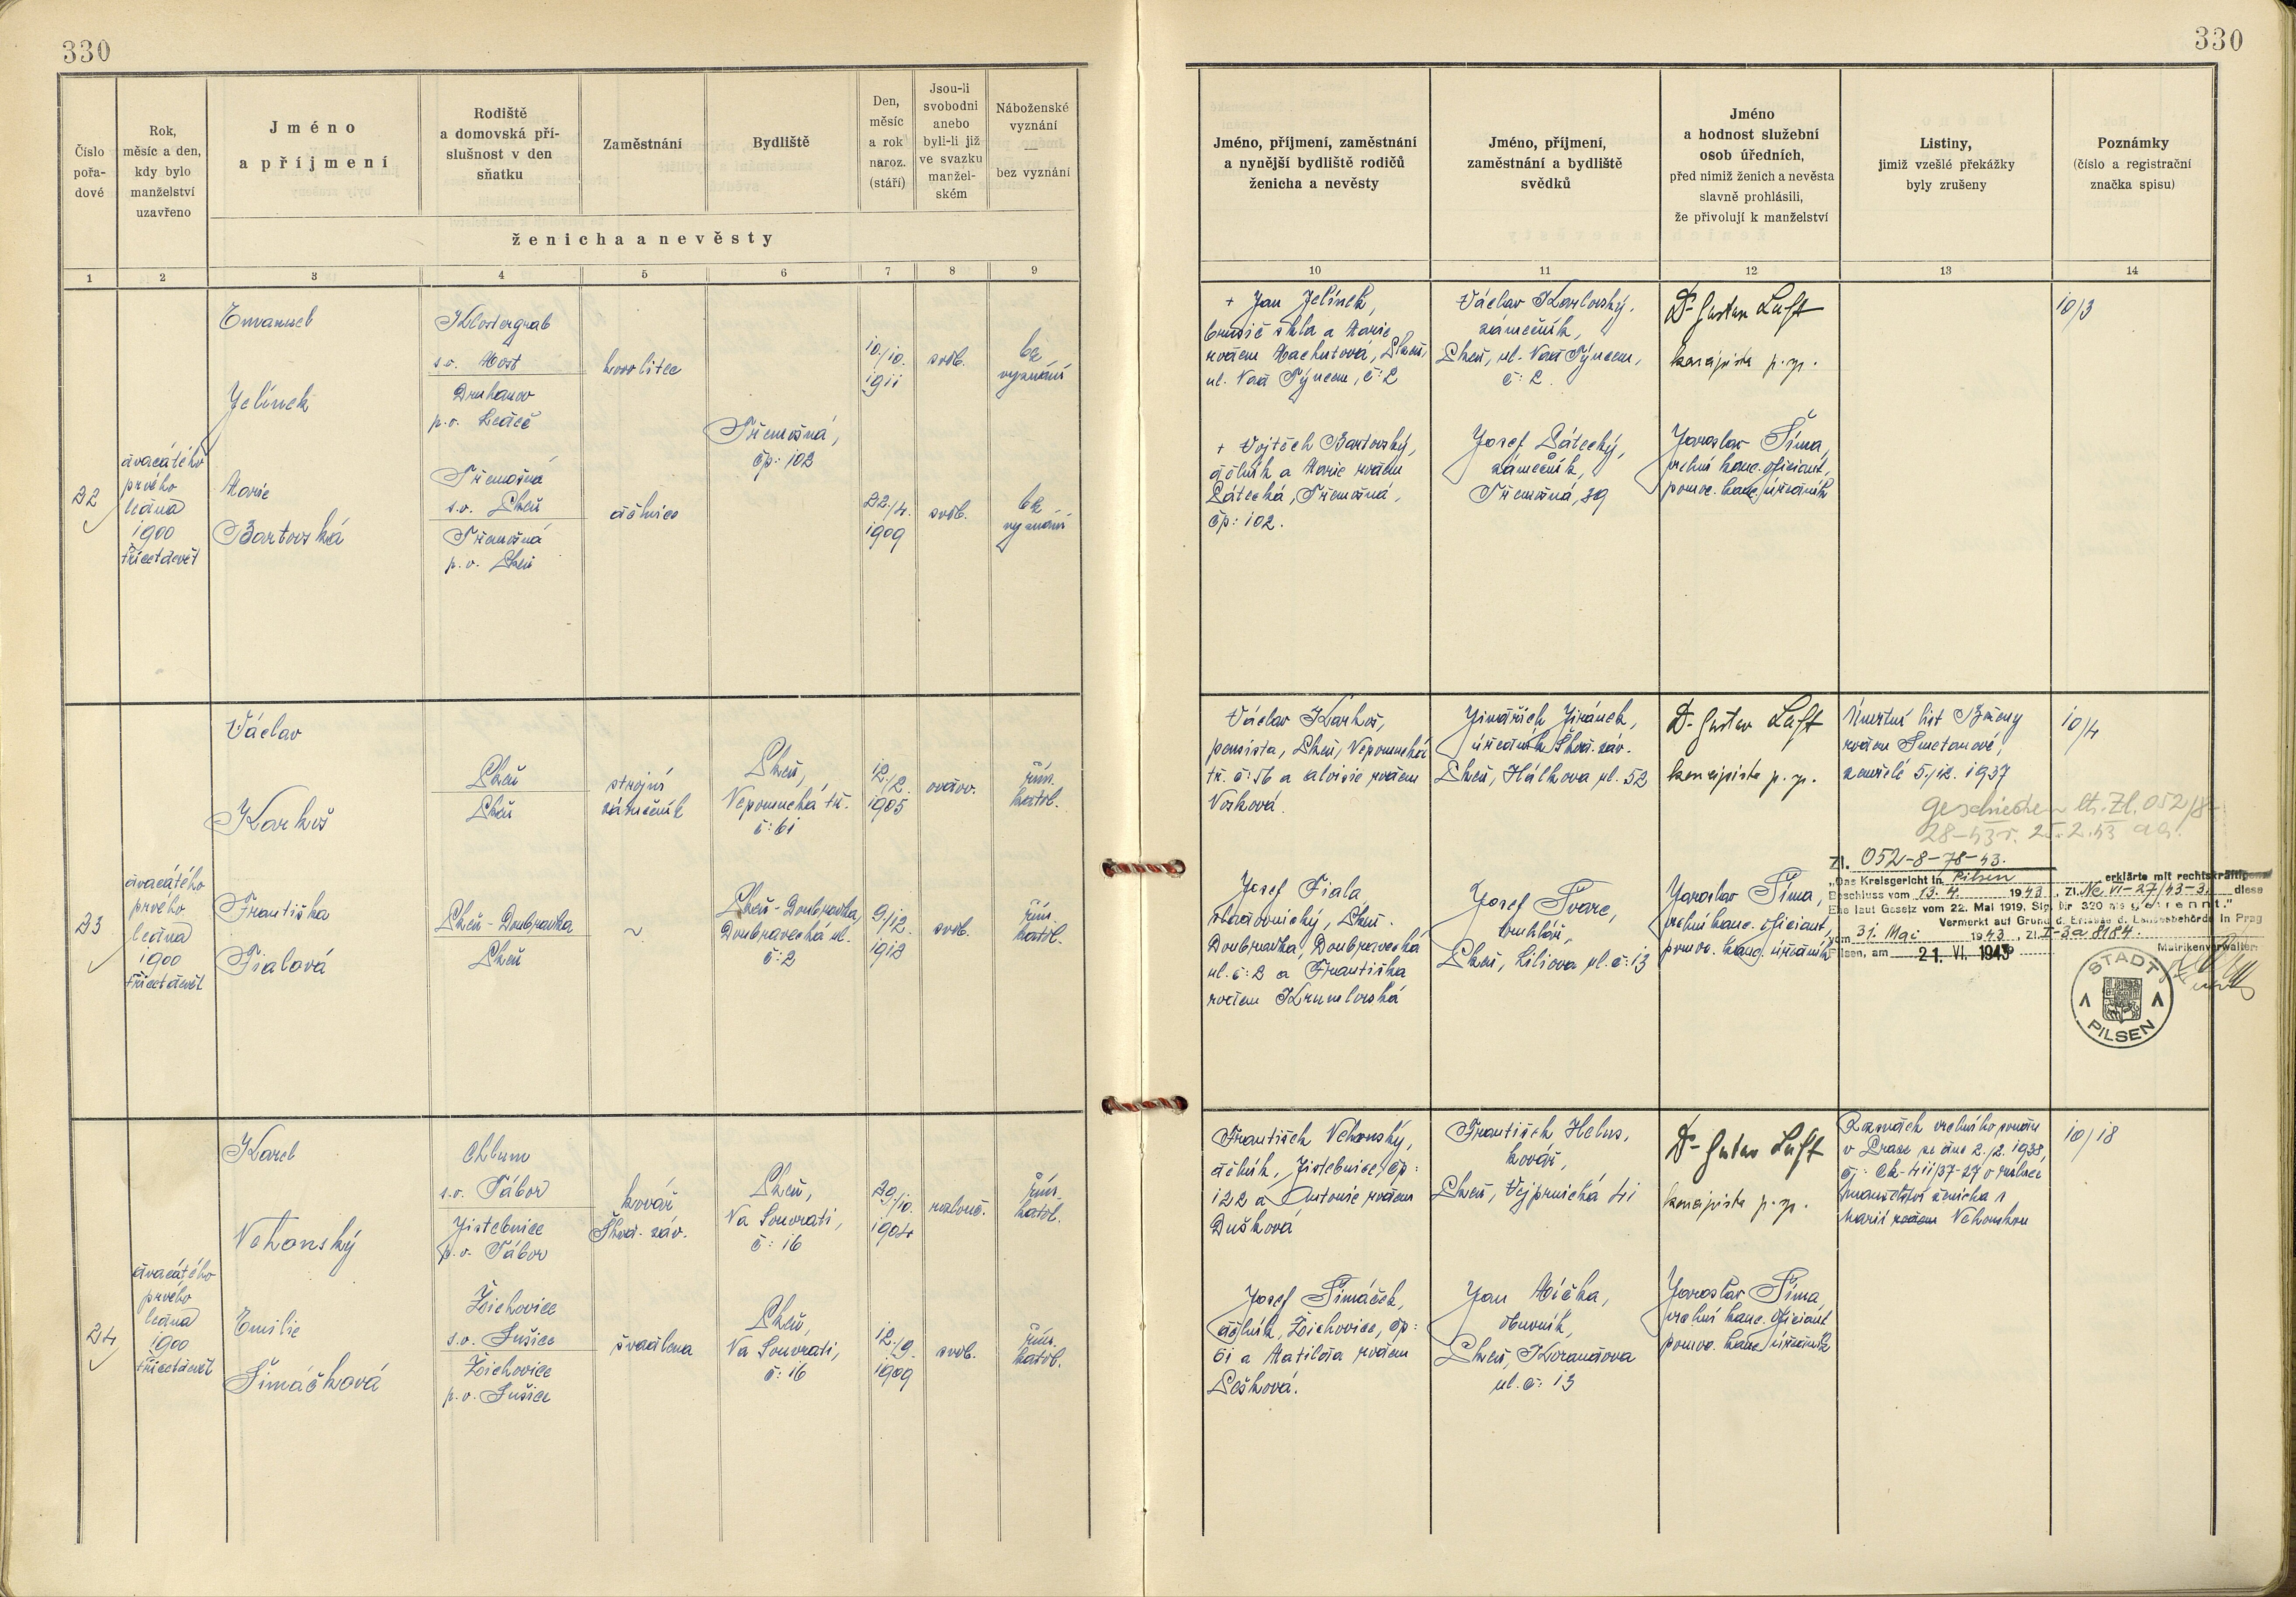 330
330
Číslo pořa-
dové
Rok,
měsíc a den,
kdy bylo
manželství
uzavřeno
Jméno
a příjmení
Rodiště
a domovská pří-
slušnost v den
sňatku
Zaměstnání
Bydliště
Den,
měsíc
a rok
naroz.
(stáří)
Jsou-li
svobodni
anebo
byli-li již
ve svazku
manžel-
ském
Náboženské
vyznání
—
bez vyznání
ženicha a nevěsty
Jméno, příjmení, zaměstnání
a nynější bydliště rodičů
ženicha a nevěsty
Jméno, příjmení,
zaměstnání a bydliště
svědků
Jméno
a hodnost služební
osob úředních,
před nimiž ženich a nevěsta
slavně prohlásili,
že přivolují k manželství
Listiny,
jimiž vzešlé překážky
byly zrušeny
Poznámky
(číslo a registrační
značka spisu)
1 2 3 4 5 6 7 8 9 10 11 12 13 14
22
dvacátého
prvého
ledna
1900
třicetdevět
Emanuel
Jelínek
Klostergrab
s.o. Most
Druhanov
p.o. Ledeč
kovolitec
10./10.
1911
svob.
bez
vyznání
Třemošná,
čp: 102
Marie
Bartovská
Třemošná
s.o. Plzeň
Třemošná
p.o. Plzeň
dělnice
22./4.
1909
svob.
bez
vyznání
+ Jan Jelínek,
brusič skla a Marie
rodem Machutová, Plzeň,
ul. Nad Týncem, č: 2
+ Vojtěch Bartovský,
dělník a Marie rodem
Pátecká, Třemošná,
čp: 102.
Václav Karlovský,
zámečník,
Plzeň, ul. Nad Týncem,
č: 2.
Josef Pátecký,
zámečník,
Třemošná, 39
Dr Gustav Luft
koncipista p. sp.
Jaroslav Šíma,
vrchní kanc. oficiant,
pomoc. kanc. úředník
10/3
23
dvacátého
prvého
ledna
1900
třicetdevět
Václav
Karkoš
Plzeň
Plzeň
strojní
zámečník
Plzeň,
Nepomucká tř.
č: 61
12./2.
1905
ovdov.
řím.
katol.
Františka
Fialová
Plzeň-Doubravka
Plzeň
~
Plzeň-Doubravka,
Doubravecká ul.
č: 2
9./12.
1912
svob.
řím.
katol.
Václav Karkoš,
pensista, Plzeň, Nepomucká
tř. č: 56 a Aloisie rodem
Vosková.
Josef Fiala,
sladovnický, Plzeň-
Doubravka, Doubravecká
ul. č: 2 a Františka
rodem Krumlovská
Jindřich Jiránek,
úředník Škod. záv.
Plzeň, Hálkova ul. 52
Josef Švarc,
truhlář,
Plzeň, Liliova ul. č: 13
Dr Gustav Luft
koncipista p. sp.
Jaroslav Šíma,
vrchní kanc. oficiant,
pomoc. kanc. úředník
Úmrtní list Boženy
rodem Smetanové,
zemřelé 5./12. 1937
10/4
geschieden lt. Zl. 052/8-
28-43 v. 25.2.43
Zl. 052-8-78-43.
„Das Kreisgericht in Pilsen erklärte mit rechtskräftigem
Beschluss vom 13. 4. 1943, Zl. Nc VI-27/43-3 diese
Ehe laut Gesetz vom 22. Mai 1919, Slg. Nr 320 als getrennt."
Vermerkt auf Grund d. Erlasse d. Landesbehörde in Prag
vom 31. Mai 1943, Zl. I-3a 8184.
Pilsen, am 21. VI. 1943
Matrikenverwalter:
STADT PILSEN
24
dvacátého
prvého
ledna
1900
třicetdevět
Karel
Nehonský
Chlum
s.o. Tábor
Jistebnice
p.o. Tábor
kovář
Škod. záv.
Plzeň,
Na Souvrati,
č: 16
29./10.
1904
rozlouč.
řím.
katol.
Emilie
Šimáčková
Žichovice
s.o. Sušice
Žichovice
p.o. Sušice
švadlena
Plzeň,
Na Souvrati,
č: 16
12./9.
1909
svob.
řím.
katol.
František Nehonský,
dělník, Jistebnice, čp:
122 a Antonie rodem
Dušková
Josef Šimáček,
dělník, Žichovice, čp:
61 a Matilda rodem
Pešková.
František Helus,
kovář,
Plzeň, Vejprnická 41
Jan Míčka,
obuvník,
Plzeň, Korandova
ul. č: 13
Dr Gustav Luft
koncipista p. sp.
Jaroslav Šíma,
vrchní kanc. oficiant
pomoc. kanc. úředník
Rozsudek vrchního soudu
v Praze ze dne 2./2. 1938,
čj: Ck-411/37-27 o rozluce
manželství ženicha s
Marií rodem Nehonskou
10/18